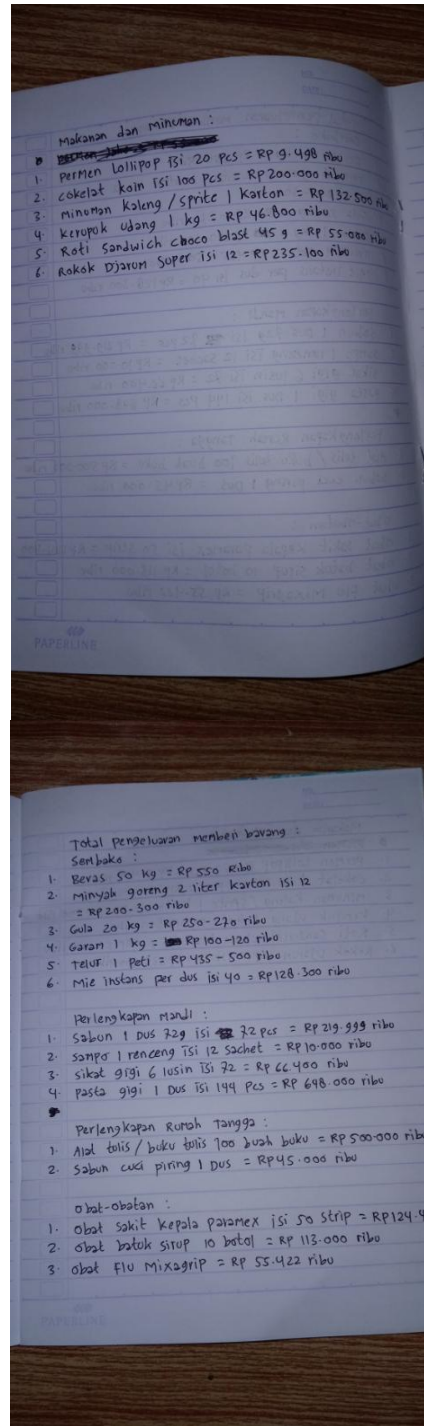 Makanan dan minuman :
1. Permen Lollipop isi 20 pcs = Rp 9.498 ribu
2. cokelat koin isi 100 pcs = Rp 200.000 ribu
3. minuman kaleng / sprite 1 karton = Rp 132.500 ribu
4. kerupuk udang 1 kg = Rp 46.800 ribu
5. Roti sandwich choco blast 45 g = Rp 55.000 ribu
6. Rokok Djarum super isi 12 = Rp 235.100 ribu
PAPERLINE
Total pengeluaran membeli barang :
Sembako :
1. Beras 50 kg = Rp 550 Ribu
2. Minyak goreng 2 liter karton isi 12
= Rp 200 - 300 ribu
3. Gula 20 kg = Rp 250 - 270 ribu
4. Garam 1 kg = Rp 100 - 120 ribu
5. Telur 1 Peti = Rp 435 - 500 ribu
6. Mie instans per dus isi 40 = Rp 128.300 ribu
Perlengkapan Mandi :
1. Sabun 1 Dus 72g isi 72 pcs = Rp 219.999 ribu
2. sampo 1 renceng isi 12 sachet = Rp 10.000 ribu
3. sikat gigi 6 lusin isi 72 = Rp 66.400 ribu
4. pasta gigi 1 Dus isi 144 Pcs = Rp 698.000 ribu
Perlengkapan Rumah Tangga :
1. Alat tulis / buku tulis 100 buah buku = Rp 500.000 ribu
2. Sabun cuci piring 1 Dus = Rp 45.000 ribu
obat-obatan :
1. obat sakit kepala paramex isi 50 strip = Rp 124.4
2. obat batuk sirup 10 botol = Rp 113.000 ribu
3. obat Flu Mixagrip = Rp 55.422 ribu
PAPERLINE